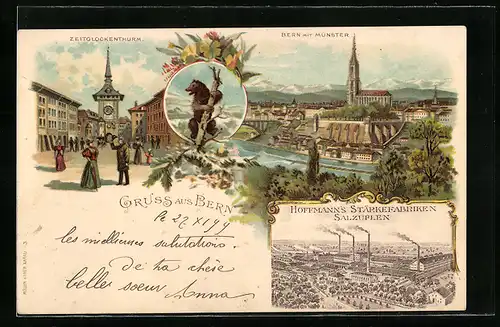 ZEITGLOCKENTHURM.
BERN MIT MÜNSTER
GRUSS AUS BERN
Le 27 XI 99
HOFFMANN'S STÄRKEFABRIKEN
SALZUFLEN
les meilleures salutations
de ta chère
belles soeur Anna